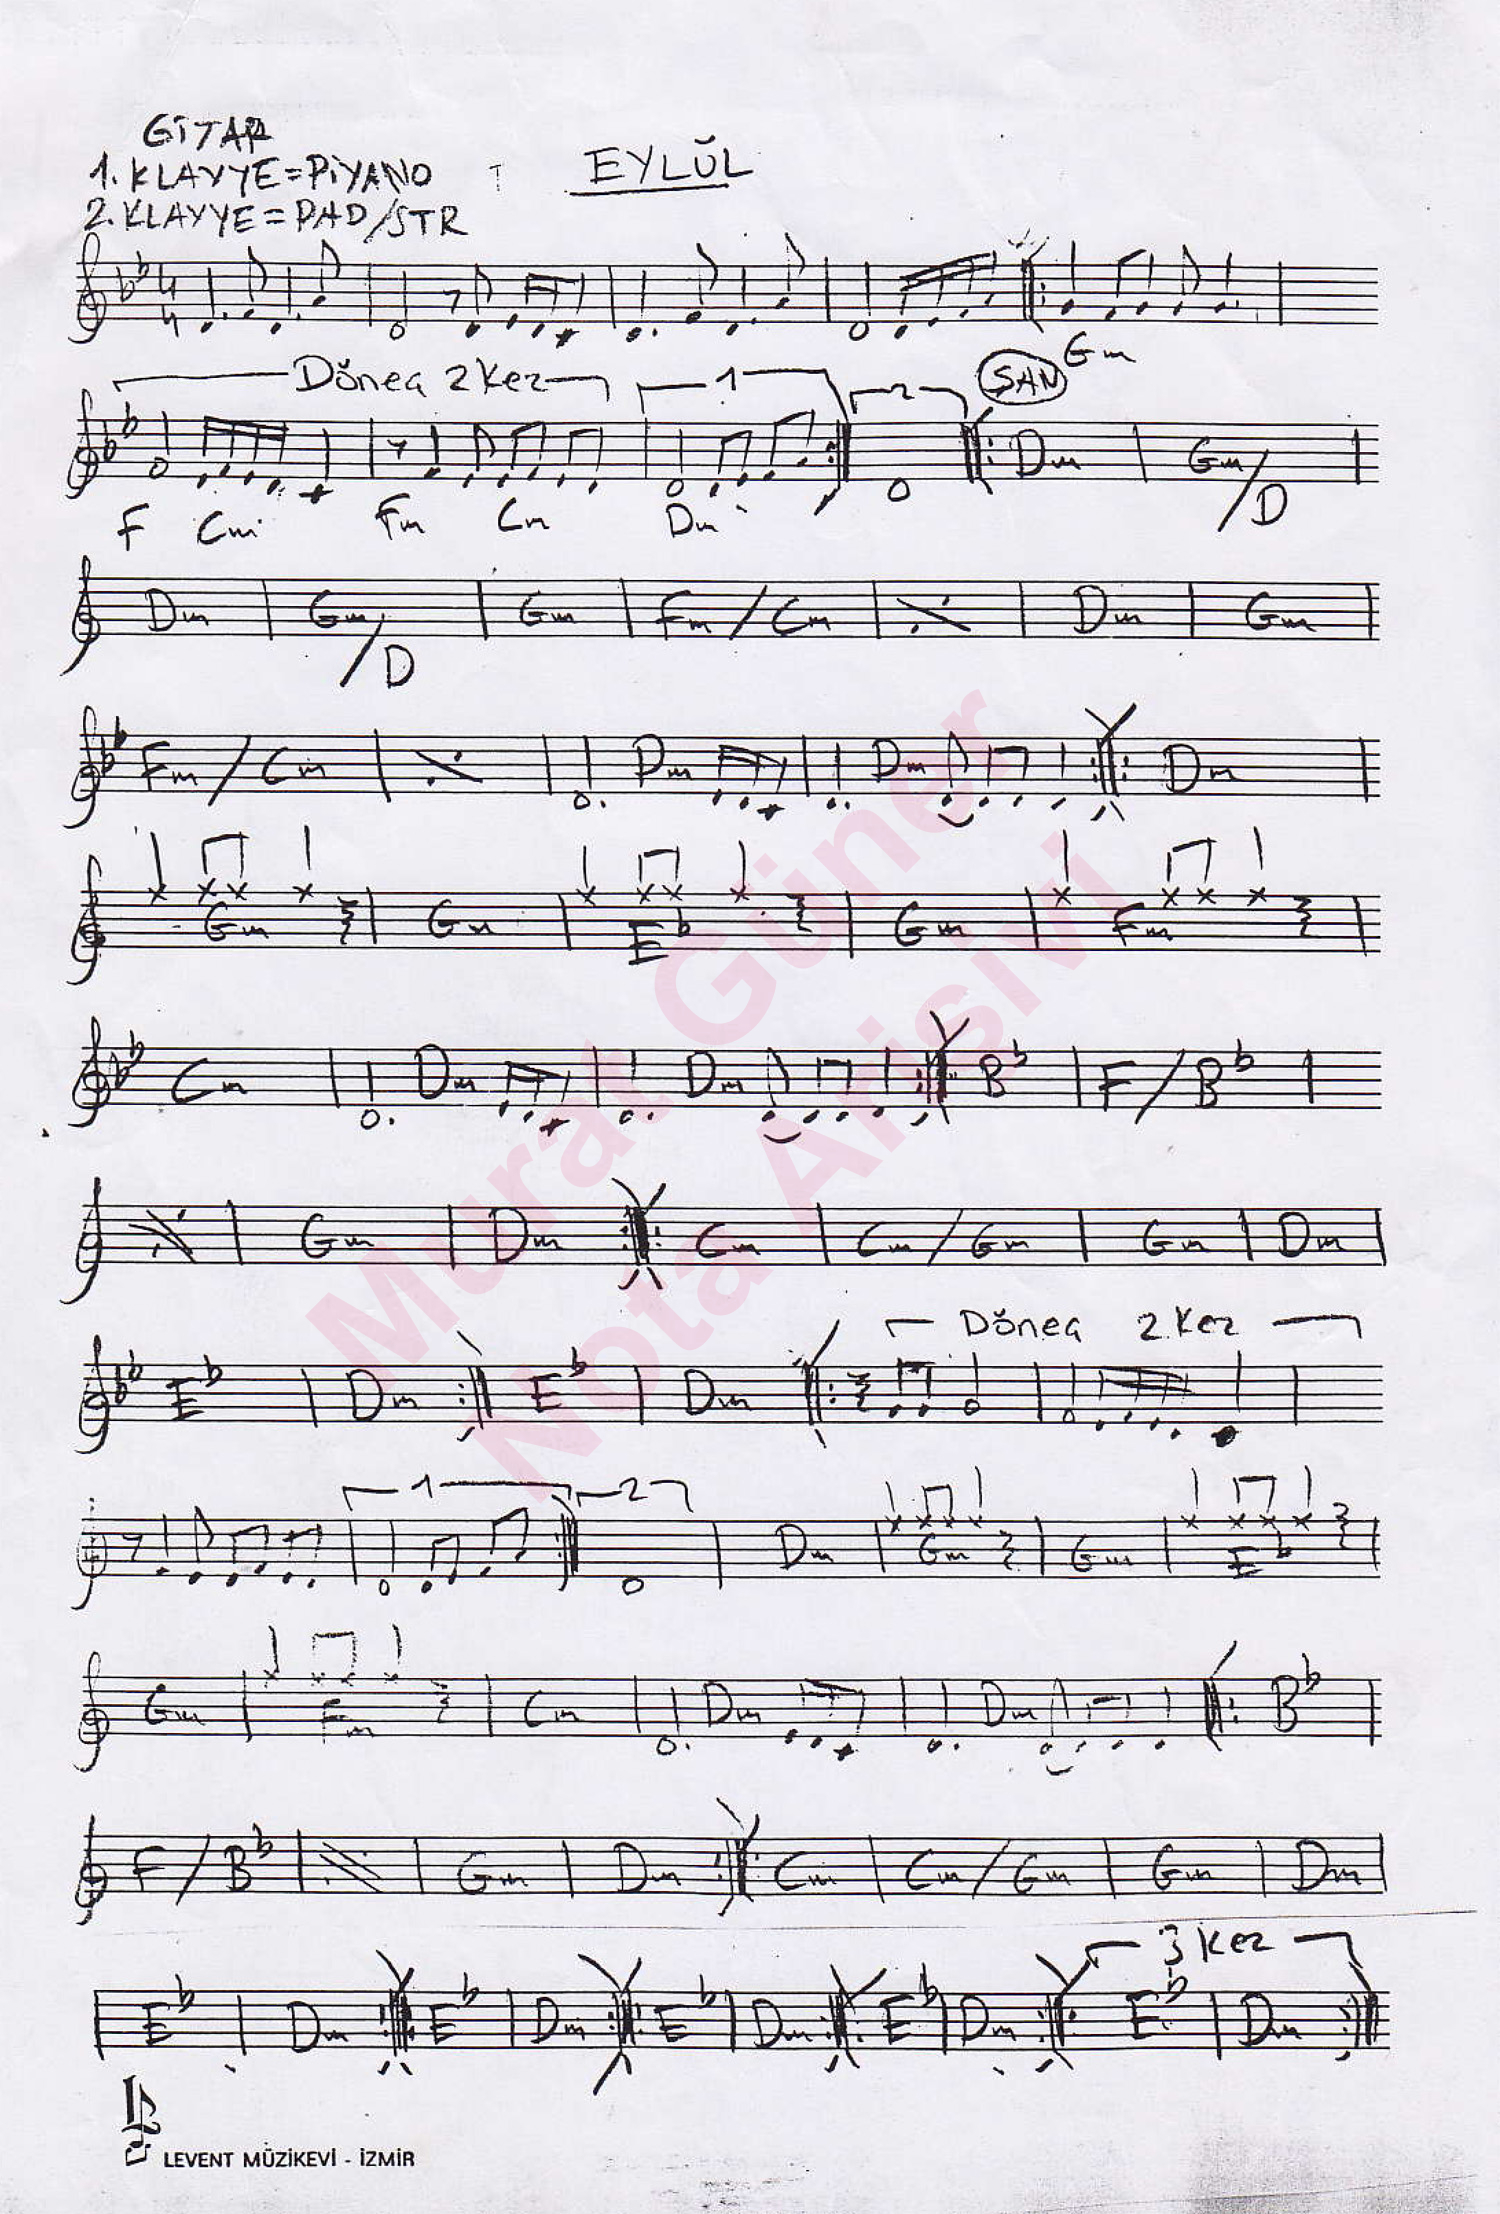 GİTAR
1. KLAVYE = PİYANO
EYLŬL
2. KLAVYE = PAD/STR
Gm
Dŏneq 2 Kez 1 2 SAN
Dm Gm/D
F Cm Fm Cm Dm
Dm Gm/D Gm Fm/Cm Dm Gm
Fm/Cm Dm Dm Dm
Gm Gm E♭ Gm Fm
Cm Dm Dm B♭ F/B♭
Gm Dm Cm Cm/Gm Gm Dm
Dŏneq 2 Kez
E♭ Dm E♭ Dm
1 2
Dm Gm Gm E♭
Gm Fm Cm Dm Dm B♭
F/B♭ Gm Dm Cm Cm/Gm Gm Dm
3 Kez
E♭ Dm E♭ Dm E♭ Dm E♭ Dm E♭ Dm
LEVENT MÜZİKEVİ - İZMİR
Murat Güner
Nota Arisivi